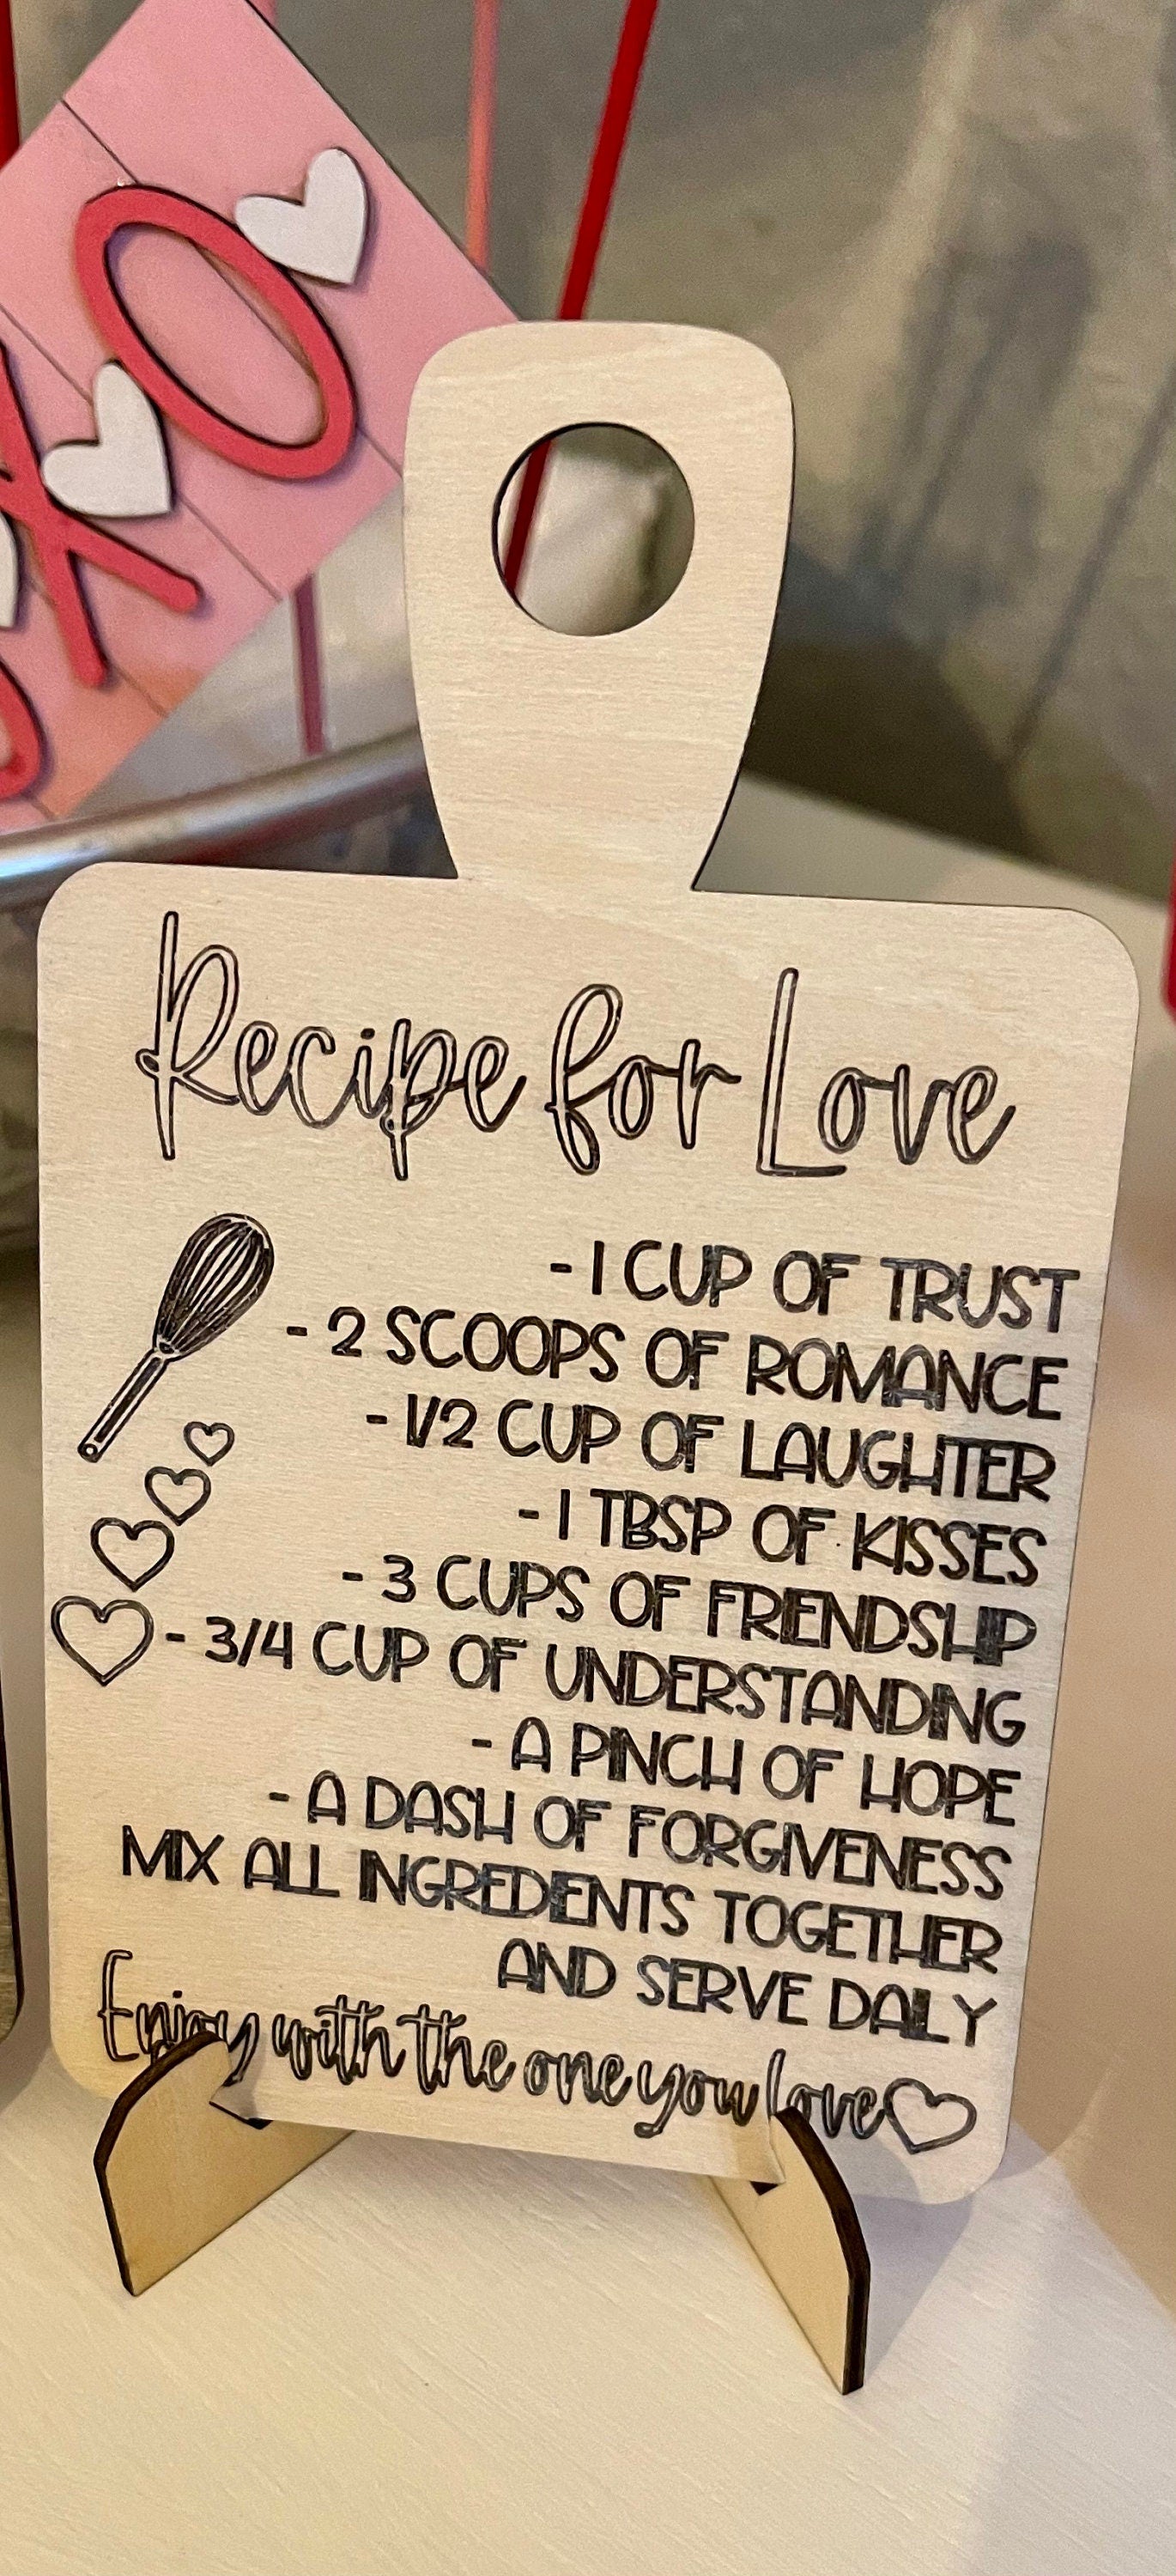 XO
Recipe for Love
- 1 CUP OF TRUST
- 2 SCOOPS OF ROMANCE
- 1/2 CUP OF LAUGHTER
- 1 TBSP OF KISSES
- 3 CUPS OF FRIENDSHIP
- 3/4 CUP OF UNDERSTANDING
- A PINCH OF HOPE
- A DASH OF FORGIVENESS
MIX ALL INGREDIENTS TOGETHER
AND SERVE DAILY
Enjoy with the one you love